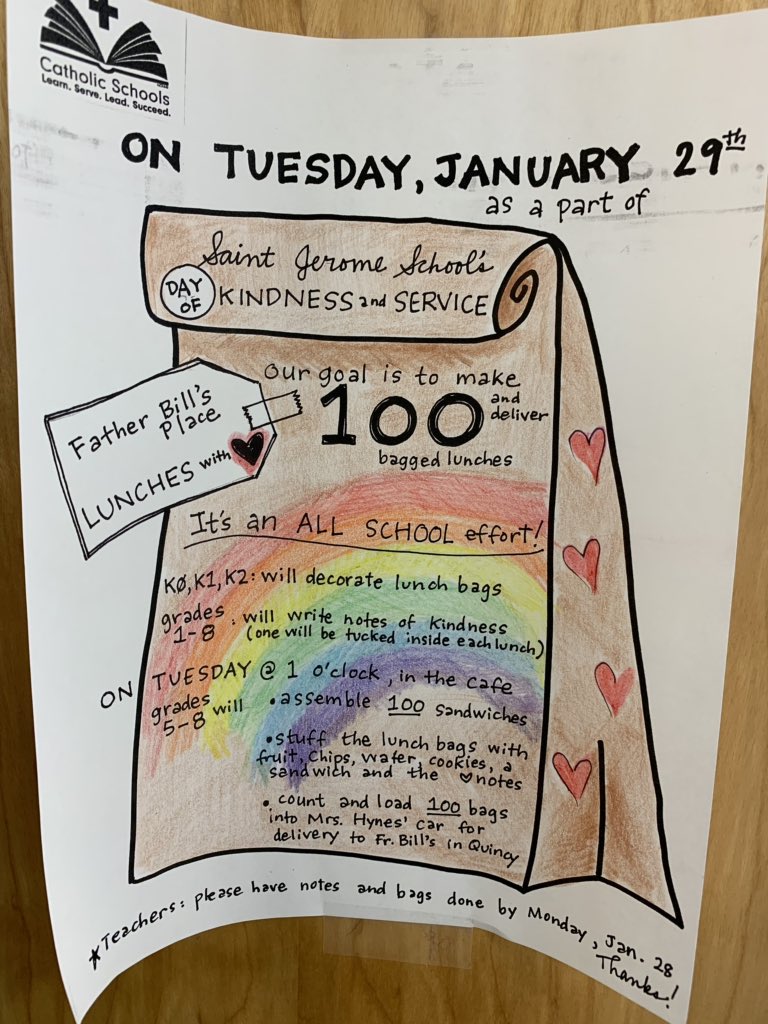 Catholic Schools
Learn. Serve. Lead. Succeed.
ON TUESDAY, JANUARY 29th
as a part of
Saint Jerome School's
DAY OF KINDNESS and SERVICE
Our goal is to make
100 and deliver
bagged lunches
Father Bill's
Place
LUNCHES with
It's an ALL SCHOOL effort!
KØ, K1, K2: will decorate lunch bags
grades 1-8: will write notes of kindness
(one will be tucked inside each lunch)
ON TUESDAY @ 1 o'clock, in the cafe
grades 5-8 will • assemble 100 sandwiches
• stuff the lunch bags with
fruit, chips, wafer, cookies, a
sandwich and the ♡ notes
• count and load 100 bags
into Mrs. Hynes' car for
delivery to Fr. Bill's in Quincy
*Teachers: please have notes and bags done by Monday, Jan. 28
Thanks!